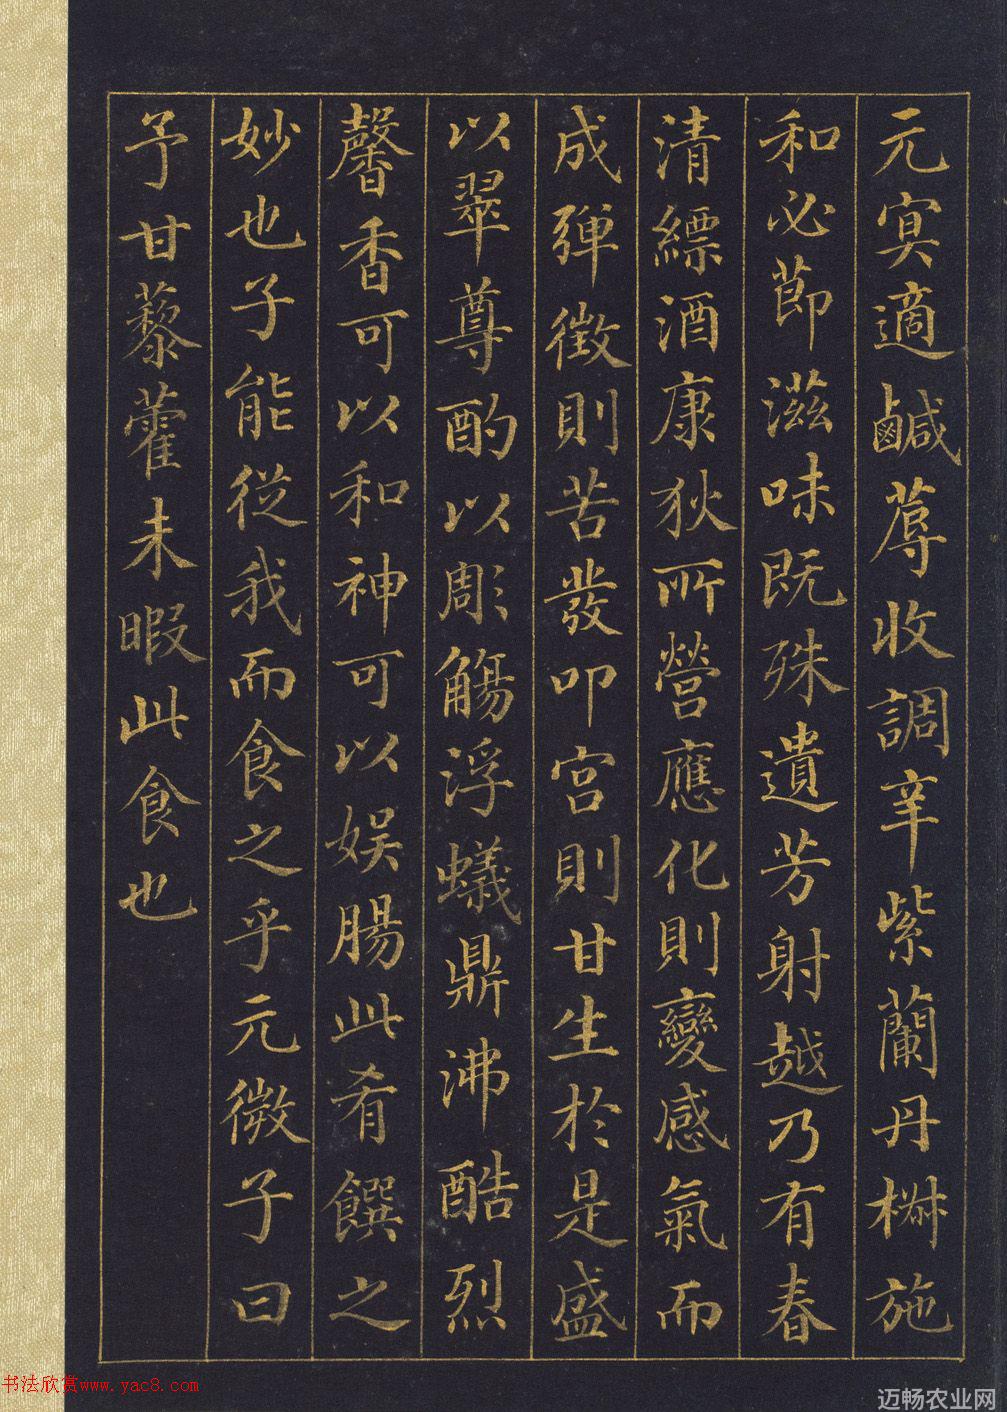 元冥適鹹蓐收調辛紫蘭丹椒施
和必節滋味既殊遺芳射越乃有春
清縹酒康狄所營應化則變感氣而
成彈徵則苦發叩宮則甘生於是盛
以翠尊酌以彫觴浮蟻鼎沸酷烈
馨香可以和神可以娛腸此肴饌之
妙也子能從我而食之乎元微子曰
予甘藜藿未暇此食也
书法欣赏www.yac8.com
迈畅农业网